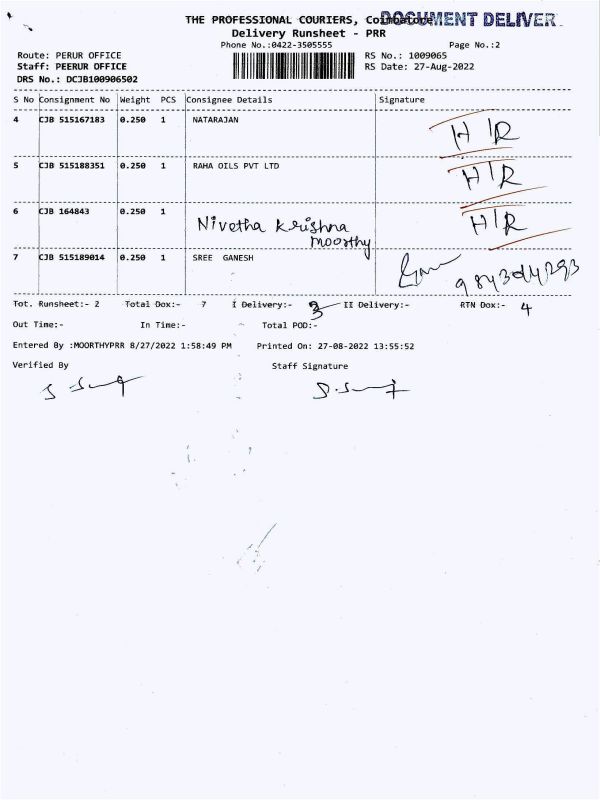 THE PROFESSIONAL COURIERS, Coimbatore
DOCUMENT DELIVER
Delivery Runsheet - PRR
Phone No.:0422-3505555
Page No.:2
Route: PERUR OFFICE
RS No.: 1009065
Staff: PEERUR OFFICE
RS Date: 27-Aug-2022
DRS No.: DCJB100906502
S No Consignment No Weight PCS Consignee Details Signature
4 CJB 515167183 0.250 1 NATARAJAN H/R
5 CJB 515188351 0.250 1 RAHA OILS PVT LTD H/R
6 CJB 164843 0.250 1 Nivetha Krishna H/R
Moorthy
7 CJB 515189014 0.250 1 SREE GANESH
Tot. Runsheet:- 2 Total Dox:- 7 I Delivery:- 3 II Delivery:- RTN Dox:- 4
Out Time:- In Time:- Total POD:-
Entered By :MOORTHYPRR 8/27/2022 1:58:49 PM Printed On: 27-08-2022 13:55:52
Verified By Staff Signature